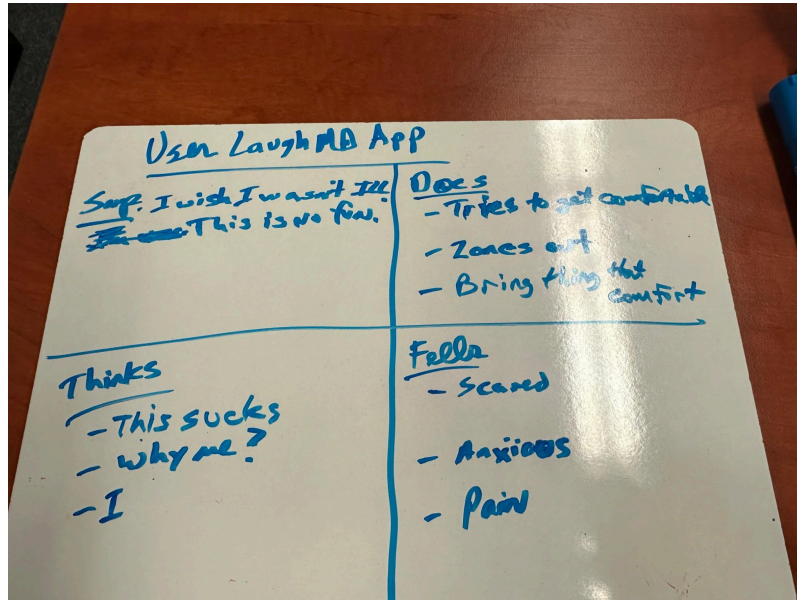 User LaughMD App
Says: I wish I wasn't Ill!
This is no fun.
Does
- Tries to get comfortable
- Zones out
- Bring thing that
comfort
Thinks
- This sucks
- Why me?
- I
Fells
- Scared
- Anxious
- Pain